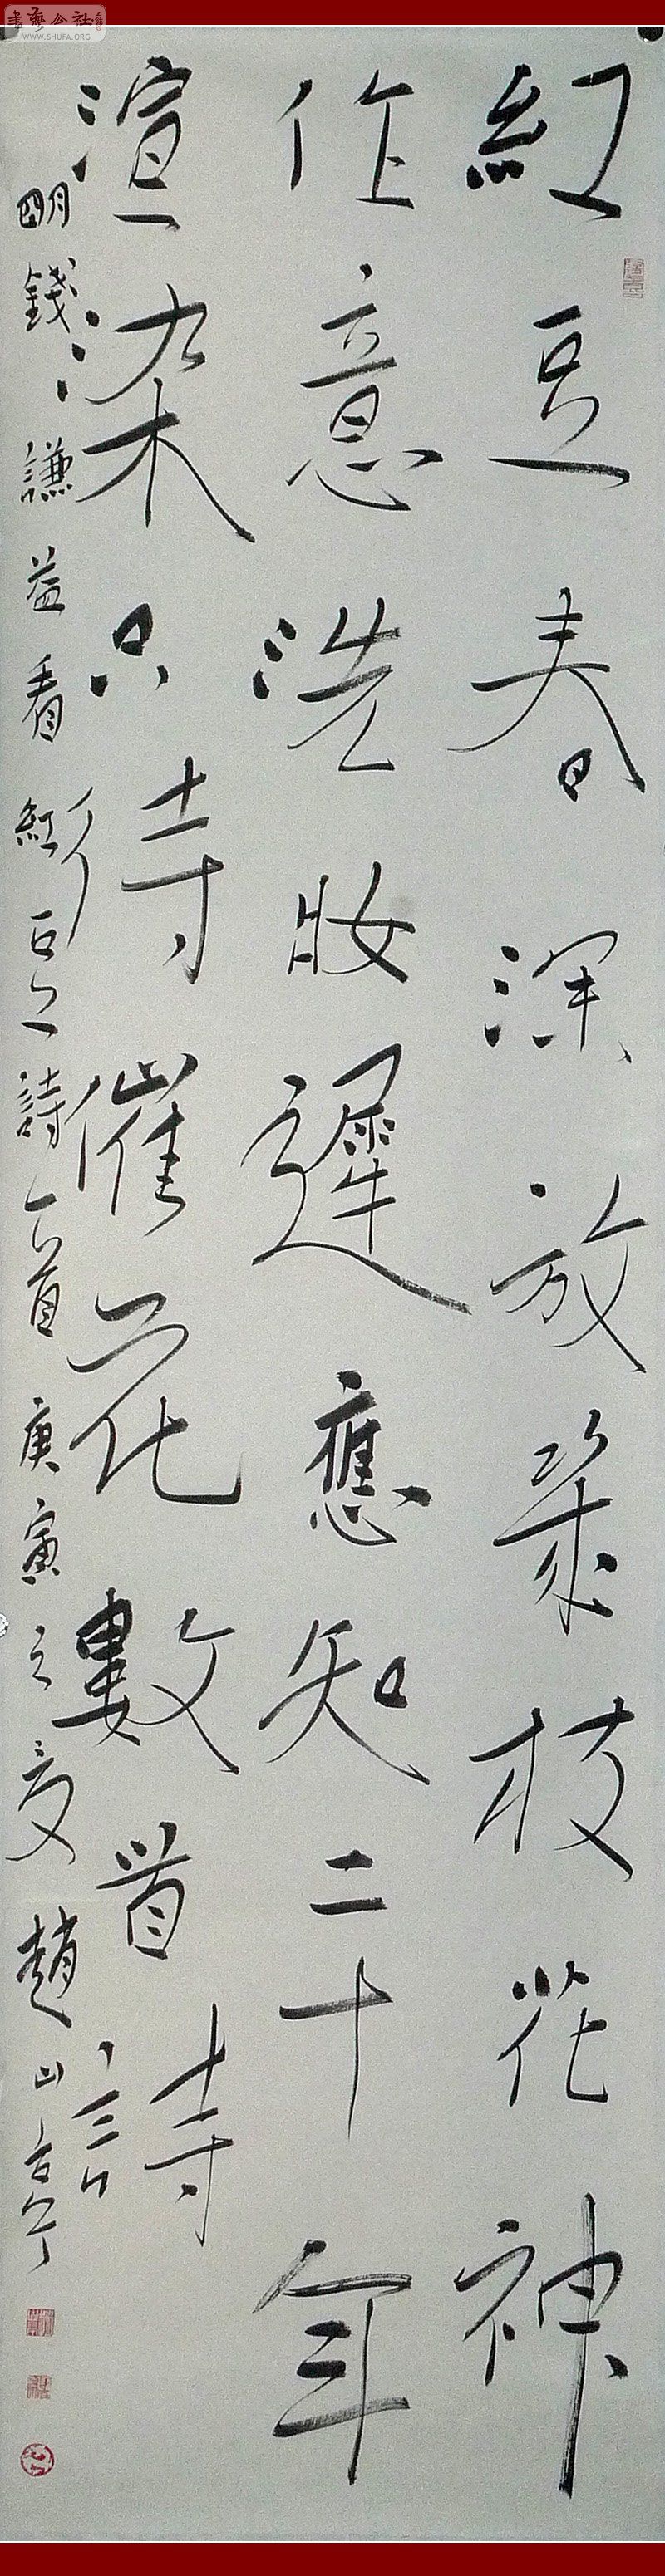 紅豆春深放幾枝花神
作意洗妝遲應知二十年
渲染只待催花數首詩
明錢謙益看紅豆詩一首庚寅之夏趙山亭
書藝公社
WWW.SHUFA.ORG